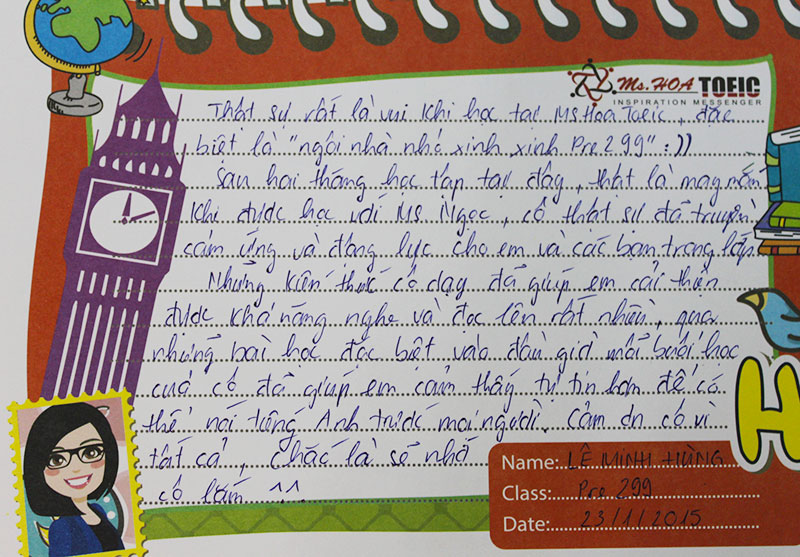 Ms. HOA TOEIC
INSPIRATION MESSENGER
Thật sự rất là vui khi học tại Ms Hoa Toeic, đặc
biệt là "ngôi nhà nhỏ xinh xinh Pre 299" :))
Sau hai tháng học tập tại đây, thật là may mắn
khi được học với Ms Ngọc, cô thật sự đã truyền
cảm ứng và động lực cho em và các bạn trong lớp.
Những kiến thức cô dạy đã giúp em cải thiện
được khả năng nghe và đọc lên rất nhiều, qua
những bài học đặc biệt vào đầu giờ mỗi buổi học
của cô đã giúp em cảm thấy tự tin hơn để có
thể nói tiếng Anh trước mọi người. Cảm ơn cô vì
tất cả, chắc là sẽ nhớ
cô lắm ^^
H
Name: LÊ MINH HÙNG
Class: Pre 299
Date: 23/1/2015